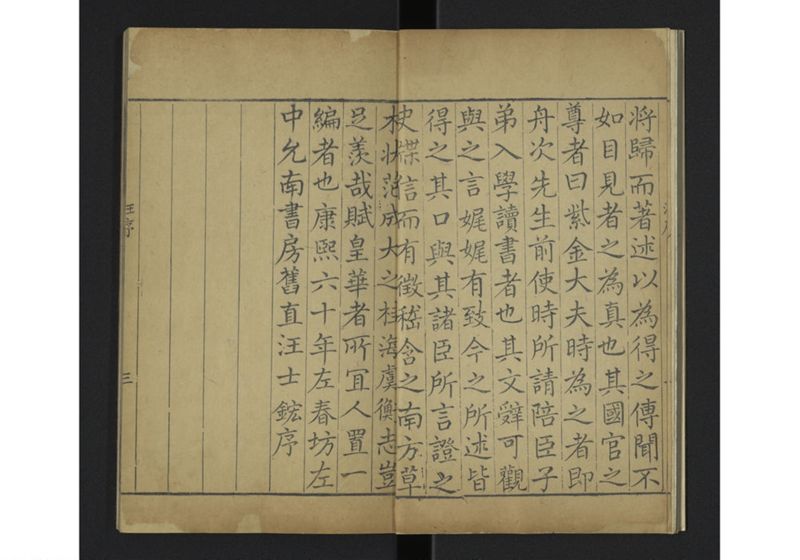 将歸而著述以為得之傳聞不
如目見者之為真也其國官之
尊者曰紫金大夫時為之者即
舟次先生前使時所請陪臣子
弟入學讀書者也其文辤可觀
與之言娓娓有致今之所述皆
得之其口與其諸臣所言證之
史牒言而有徵嵇含之南方草
木狀范成大之桂海虞衡志豈
足羨哉賦皇華者所冝人置一
編者也康熙六十年左春坊左
中允南書房舊直汪士鋐序
汪序
三